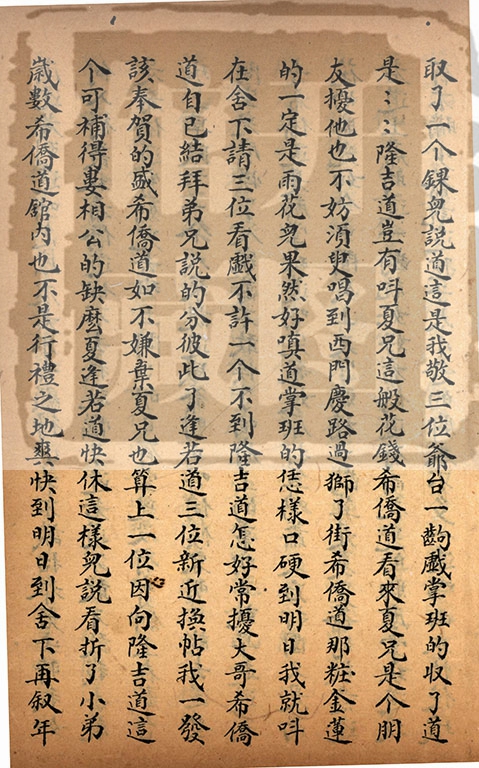 取了一个錁兒說道這是我敬三位爺台一齣戲掌班的收了道
是：：隆吉道豈有呌夏兄這般花錢希僑道看來夏兄是个朋
友擾他也不妨湏臾唱到西門慶路過獅了街希僑道那粧金蓮
的一定是雨花兒果然好嗔道掌班的恁樣口硬到明日我就呌
在舍下請三位看戲不許一个不到隆吉道怎好常擾大哥希僑
道自已結拜弟兄說的分彼此了逢若道三位新近換帖我一發
該奉賀的盛希僑道如不嫌棄夏兄也算上一位因向隆吉道這
个可補得婁相公的缺麽夏逢若道快休這樣兒說看折了小弟
歳數希僑道舘内也不是行禮之地爽快到明日到舍下再叙年